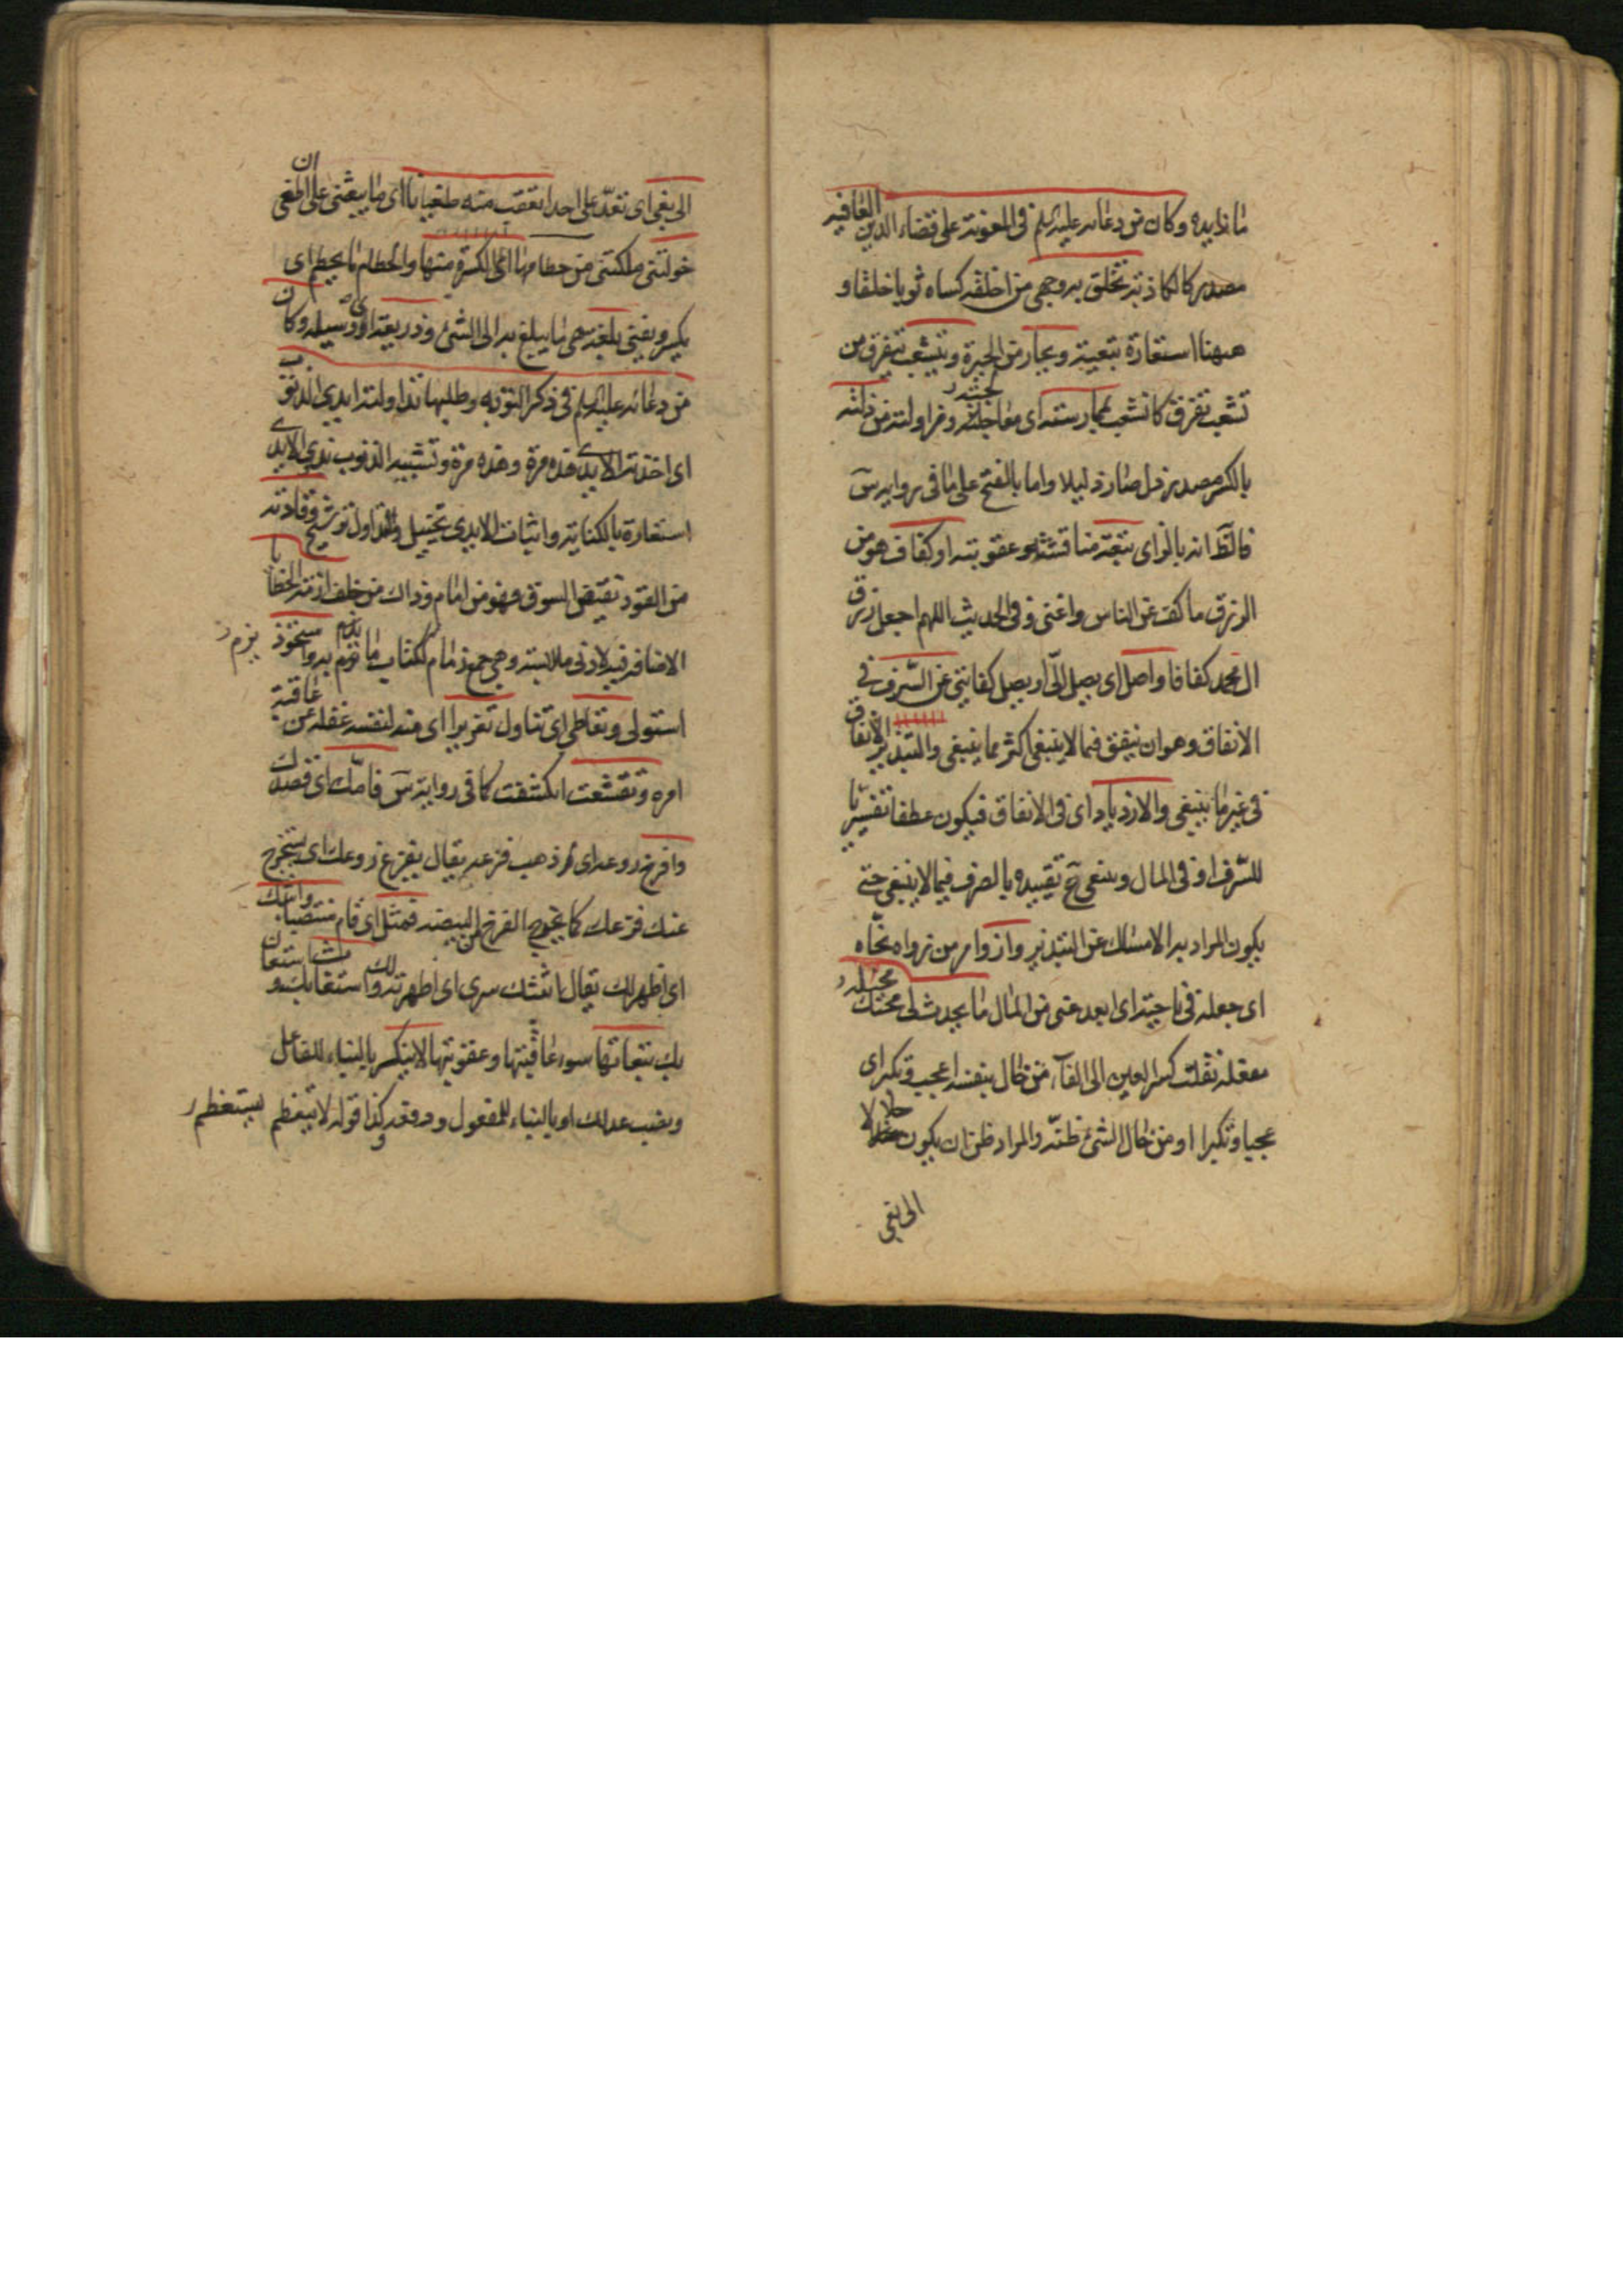 ما نذايبه وكان من دعائه عليه السلم في المعونة على قضاء الدين العافية
مصدر كالكاذبة تخلق به وجهي من اخلقه كساه ثوبا خلقا و
ههنا استعارة تبعية ويحار من الحيرة ويتشعب يتفرق من
تشعب تفرق كانشعب بممارسته اى معالجته ومزاولته من ذلته
بالكسر مصدر ذل صار ذليلا واما بالفتح على ما في رواية س
فالظ انه بالواى تبعته مناقشته وعقوبته او كفاف هو من
الرزق ما كف عن الناس واغنى وفي الحديث اللهم اجعل رزق
ال محمد كفافا واصل اى يصل الىّ او يصل كفايتي عن السّرف في
الانفاق وهو ان ينفق فيما لا ينبغي اكثر مما ينبغي والتبذير الانفاق
في غير ما ينبغي والازدياد اى في الانفاق فيكون عطفا تفسيريا
للسّرف او في المال وينبغي ح تقييده بالصرف فيما لا ينبغي حتى
يكون المراد به الامساك عن التبذير وازو امر من زواه نحّاه
اى جعله في ناحية اى ابعد عني من المال ما يحدث لي مخيلة
مفعلة نقلت كسرة العين الى الفاء من خال بنفسه اعجب وتكبر اى
عجبا وتكبرا او من خال الشئ ظنّه والمراد ظن ان يكون حلالا
الى بغي
الى بغي اى تعدّ على احد اتعقب منه طغيانا اى ما يبعثني على ان اطغى
خولتني ملكتني من حطامها اى الكسرة منها والحطام ما يحطم اى
يكسر ويفني بلغة هي ما يبلغ به الى الشئ وذريعة اى وسيلة وكان
من دعائه عليه السلم في ذكر التوبة وطلبها تداولته ايدي الذنوب
اى اخذته الايدي هذه مرة وهذه مرة وتشبيه الذنوب بذي الايدي
استعارة بالكناية واثبات الايدي تخييل والتداول ترشيح وقادته
من القود نقيض السوق فهو من امام وذاك من خلف ازمة الخطايا
الاضافة فيه لادنى ملابسة وهي جمع زمام ككتاب ما يزم به واستحوذ
استولى وتعاطى اى تناول تغريرا اى منه لنفسه غفلة عن عاقبة
امره وتقشعت انكشفت كما في رواية س فامّك اى قصدك
وافرخ روعه اى ذهب فزعه يقال يفرخ روعك اى سيخرج
عنك فزعك كما يخرج الفرخ عن البيضة فمثل اى قام منتصبا وابثك
اى اظهر لك يقال ابثثتك سري اى اظهرته لك واستغاث استعان
بك تبعاتها سوء عاقبتها وعقوبتها لا ينكر بالبناء للفاعل
ونصب عدلك او بالبناء للمفعول ورفعه وكذا قوله لا يتعظم يستعظم